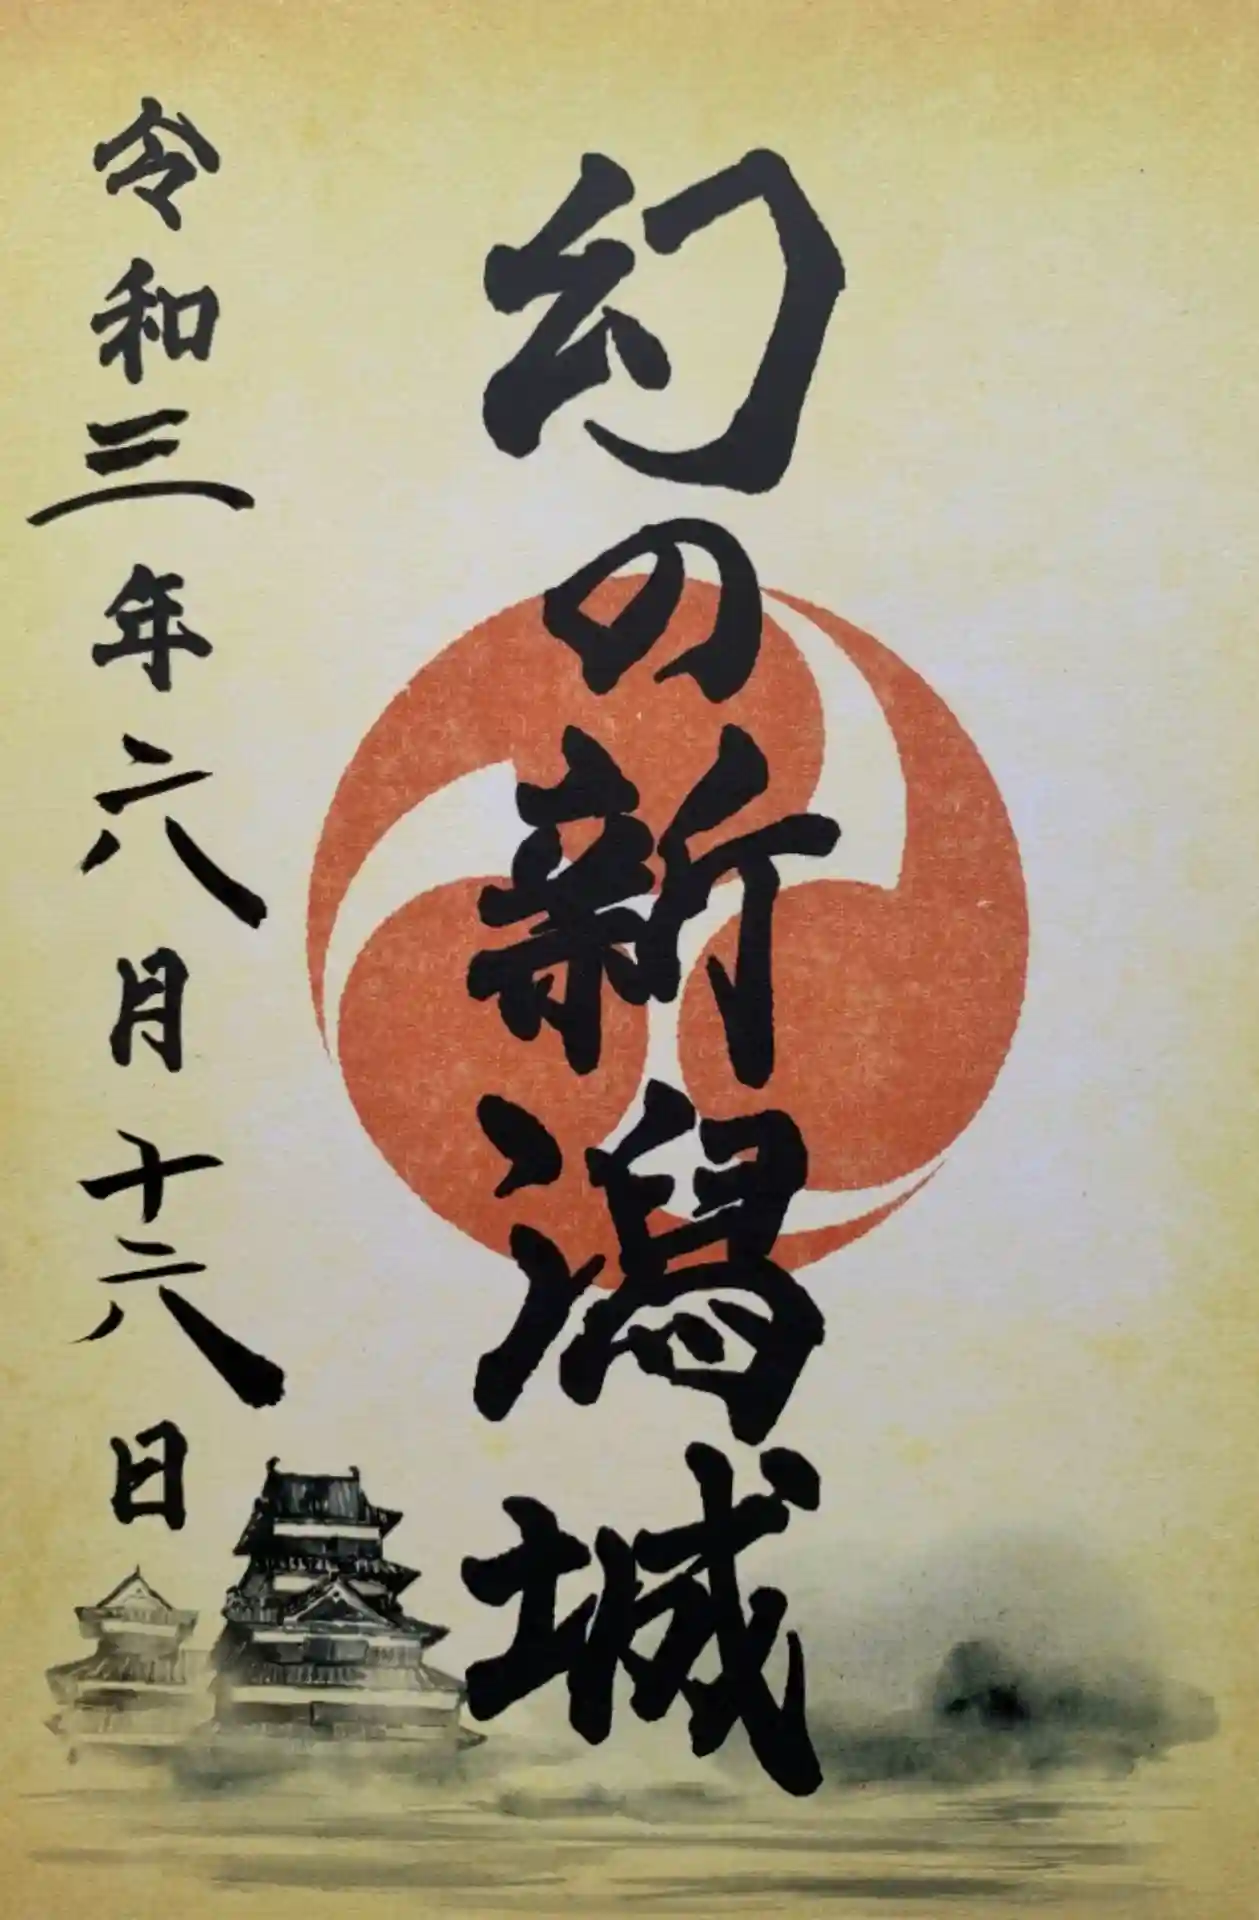 幻の新潟城
令和三年六月十六日